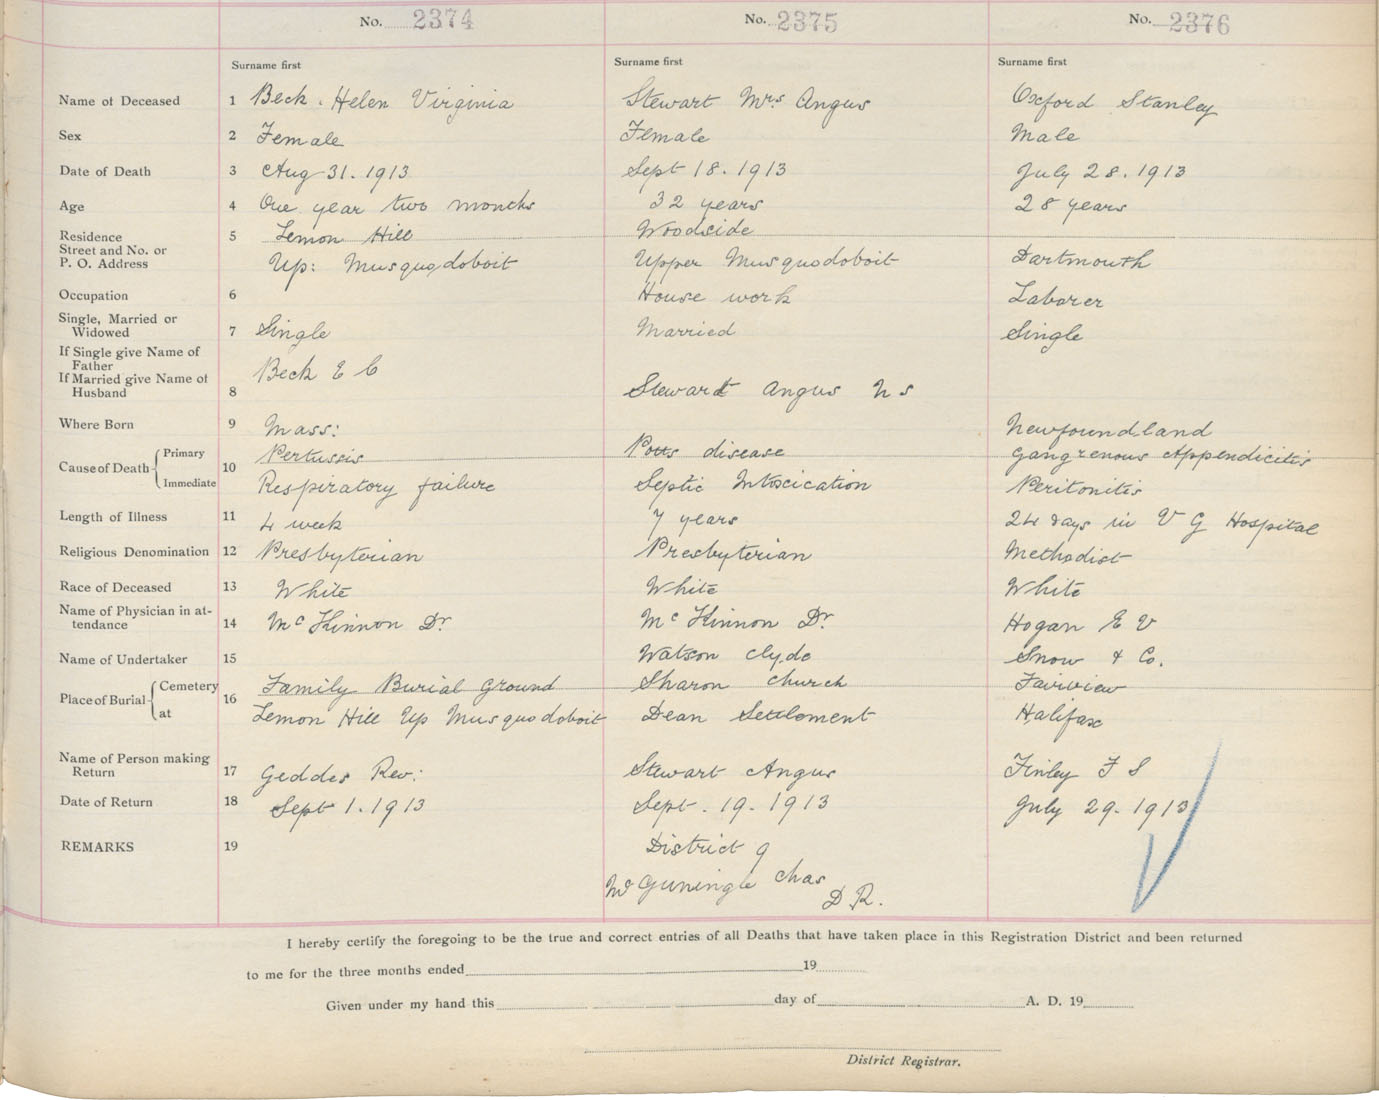 No. 2374 No. 2375 No. 2376
Surname first Surname first Surname first
Name of Deceased 1 Beck, Helen Virginia Stewart Mrs. Angus Oxford Stanley
Sex 2 Female Female Male
Date of Death 3 Aug 31. 1913 Sept 18. 1913 July 28. 1913
Age 4 One year two months 32 years 28 years
Residence 5 Lemon Hill Woodside
Street and No. or
P. O. Address Up: Musquodoboit Upper Musquodoboit Dartmouth
Occupation 6 House work Laborer
Single, Married or
Widowed 7 Single Married Single
If Single give Name of
Father Beck E C
If Married give Name of
Husband 8 Stewart Angus N S
Where Born 9 Mass: Newfoundland
Cause of Death 10 Primary Pertussis Potts disease Gangrenous Appendicitis
Immediate Respiratory failure Septic Intoxication Peritonitis
Length of Illness 11 4 week 7 years 24 days in V G Hospital
Religious Denomination 12 Presbyterian Presbyterian Methodist
Race of Deceased 13 White White White
Name of Physician in at-
tendance 14 McKinnon Dr. McKinnon Dr. Hogan E V
Name of Undertaker 15 Watson Clyde Snow & Co.
Place of Burial 16 Cemetery Family Burial Ground Sharon Church Fairview
at Lemon Hill Up Musquodoboit Dean Settlement Halifax
Name of Person making
Return 17 Geddes Rev: Stewart Angus Finley F S
Date of Return 18 Sept 1. 1913 Sept. 19. 1913 July 29. 1913
REMARKS 19 District 9
Chas
D.R.
I hereby certify the foregoing to be the true and correct entries of all Deaths that have taken place in this Registration District and been returned
to me for the three months ended 19
Given under my hand this day of A. D. 19
District Registrar.